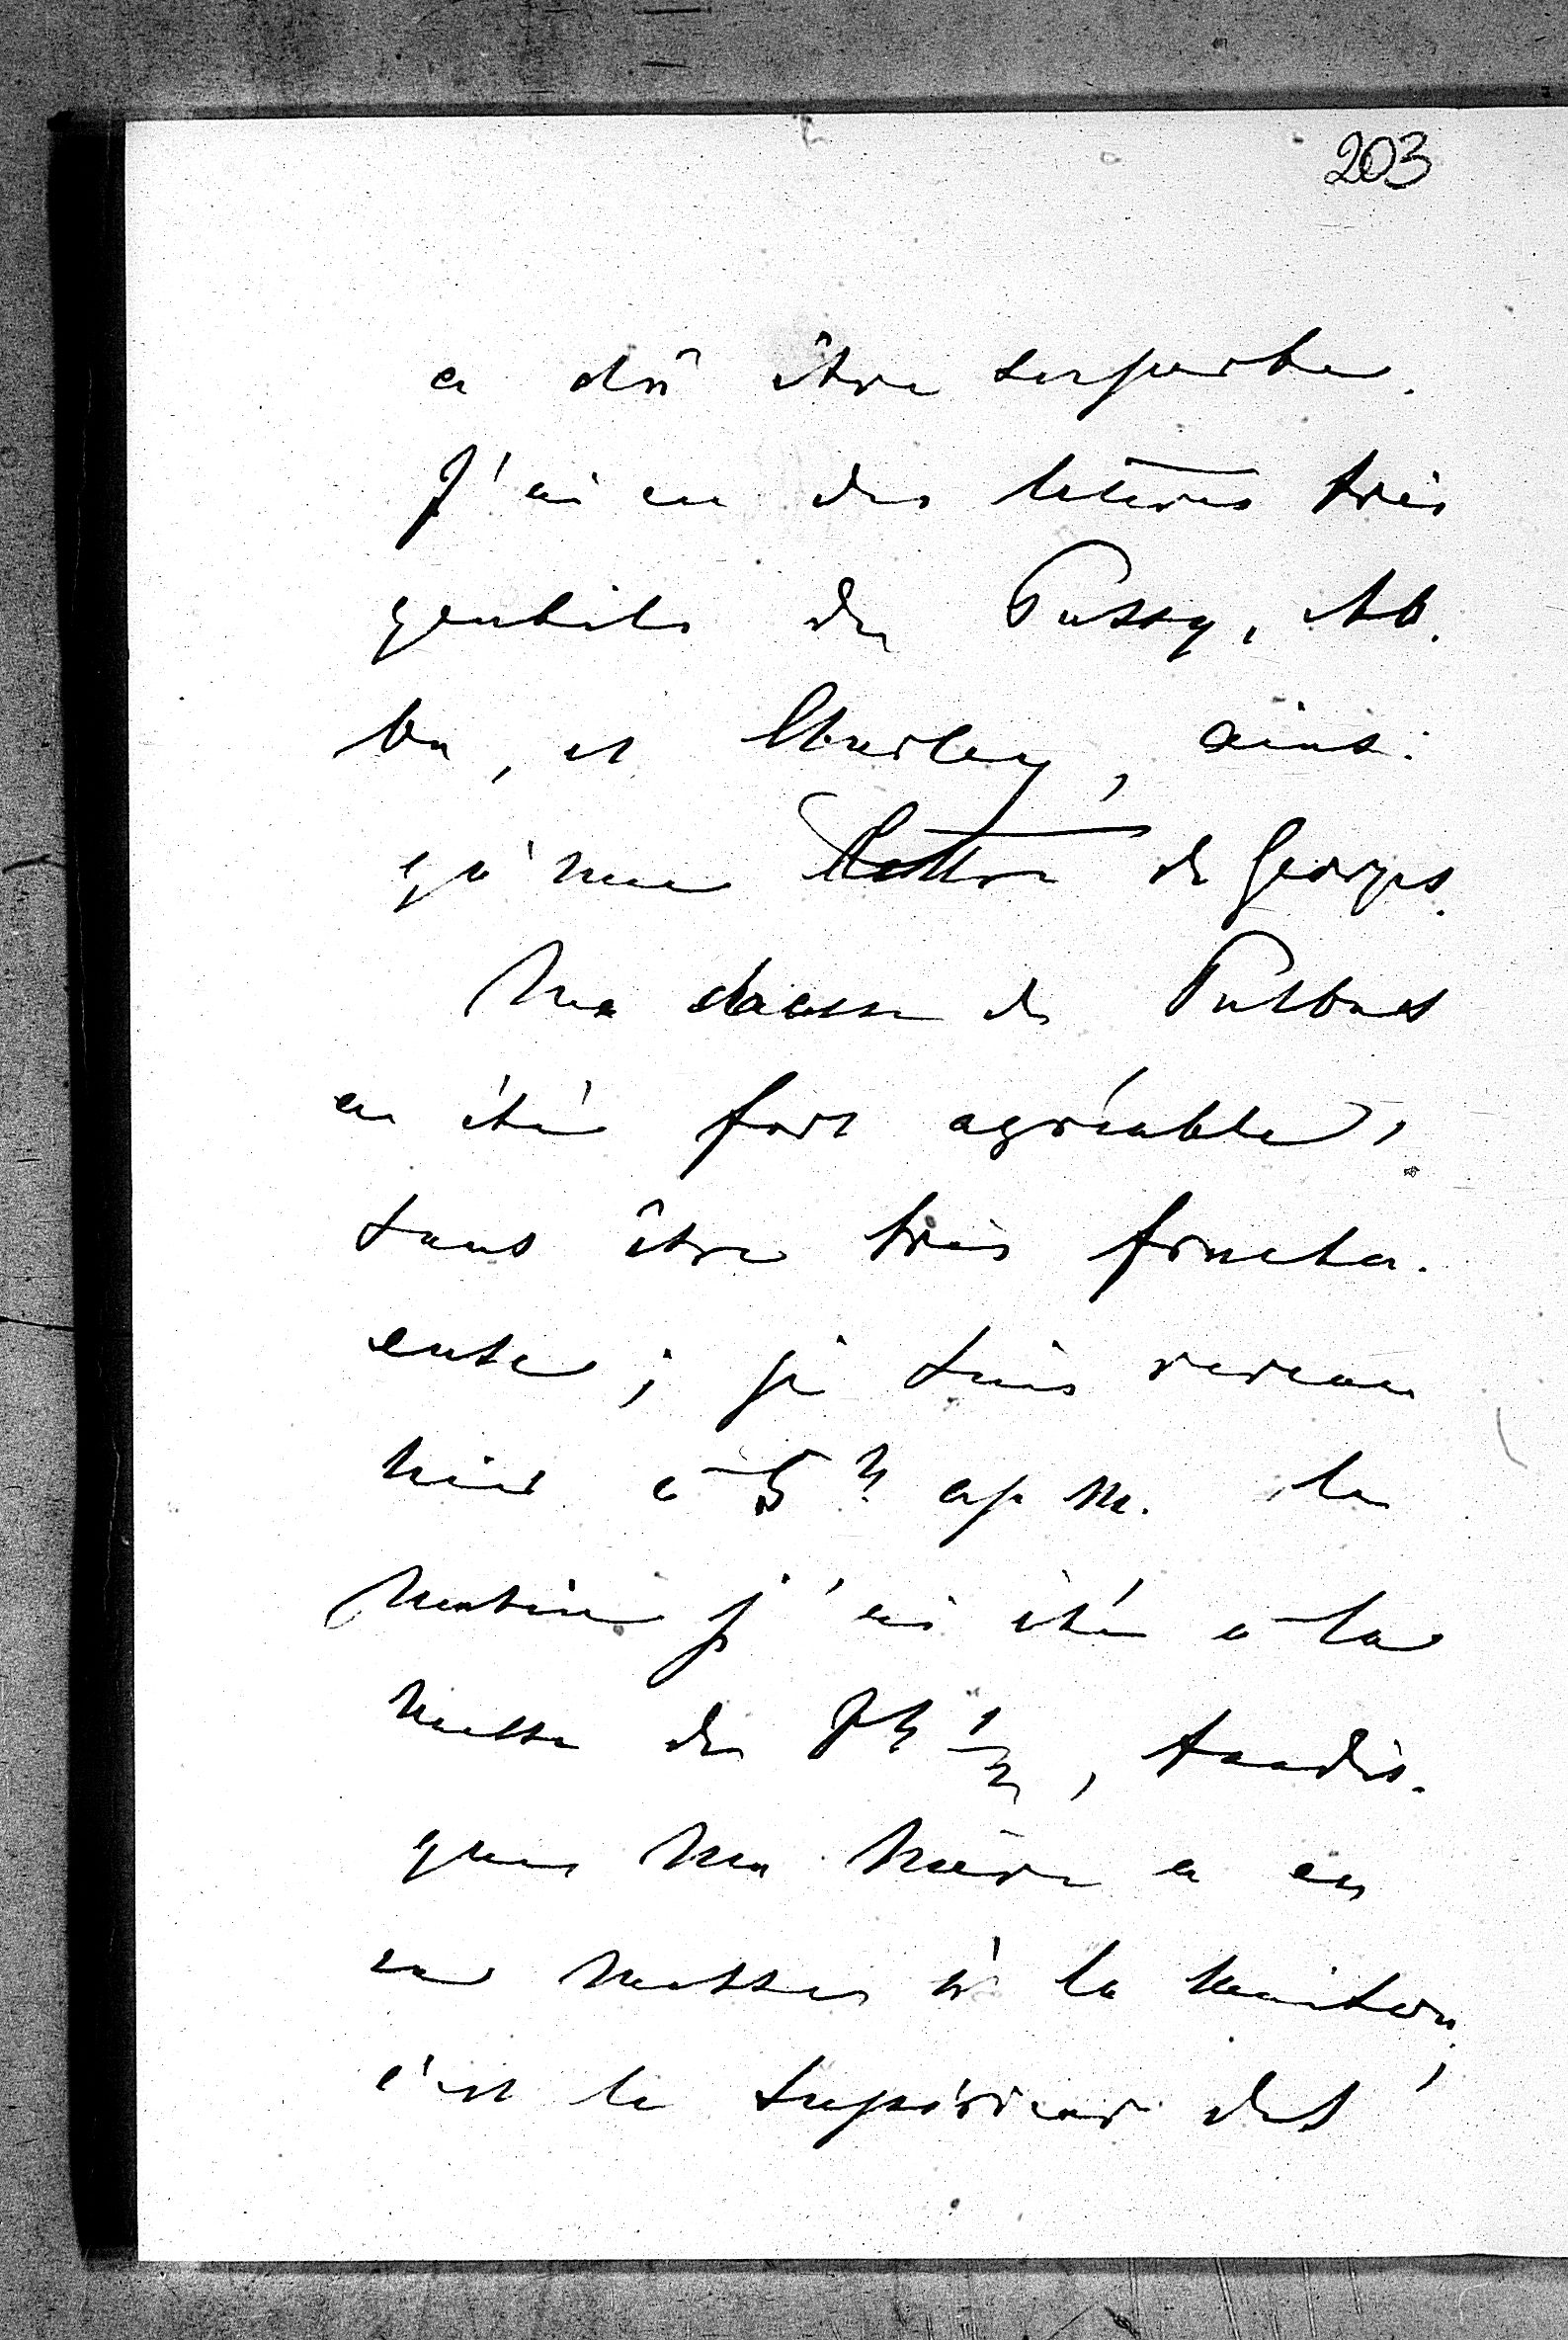 203
a dû être superbe.
J'ai eu des lettres très
gentils de Pussy, Ab.
ba, et Charley, ainsi
qu'une lettre de Georges.
Ma chasse de Putbus
a été fort agréable,
sans être très fructu.
euse; je suis revenu
hier à 5h ap m. le
matin j'ai été à la
messe de 7h 1/2, tandis.
que ma mère a eu
sa messe à la maison,
c'est le supérieur des